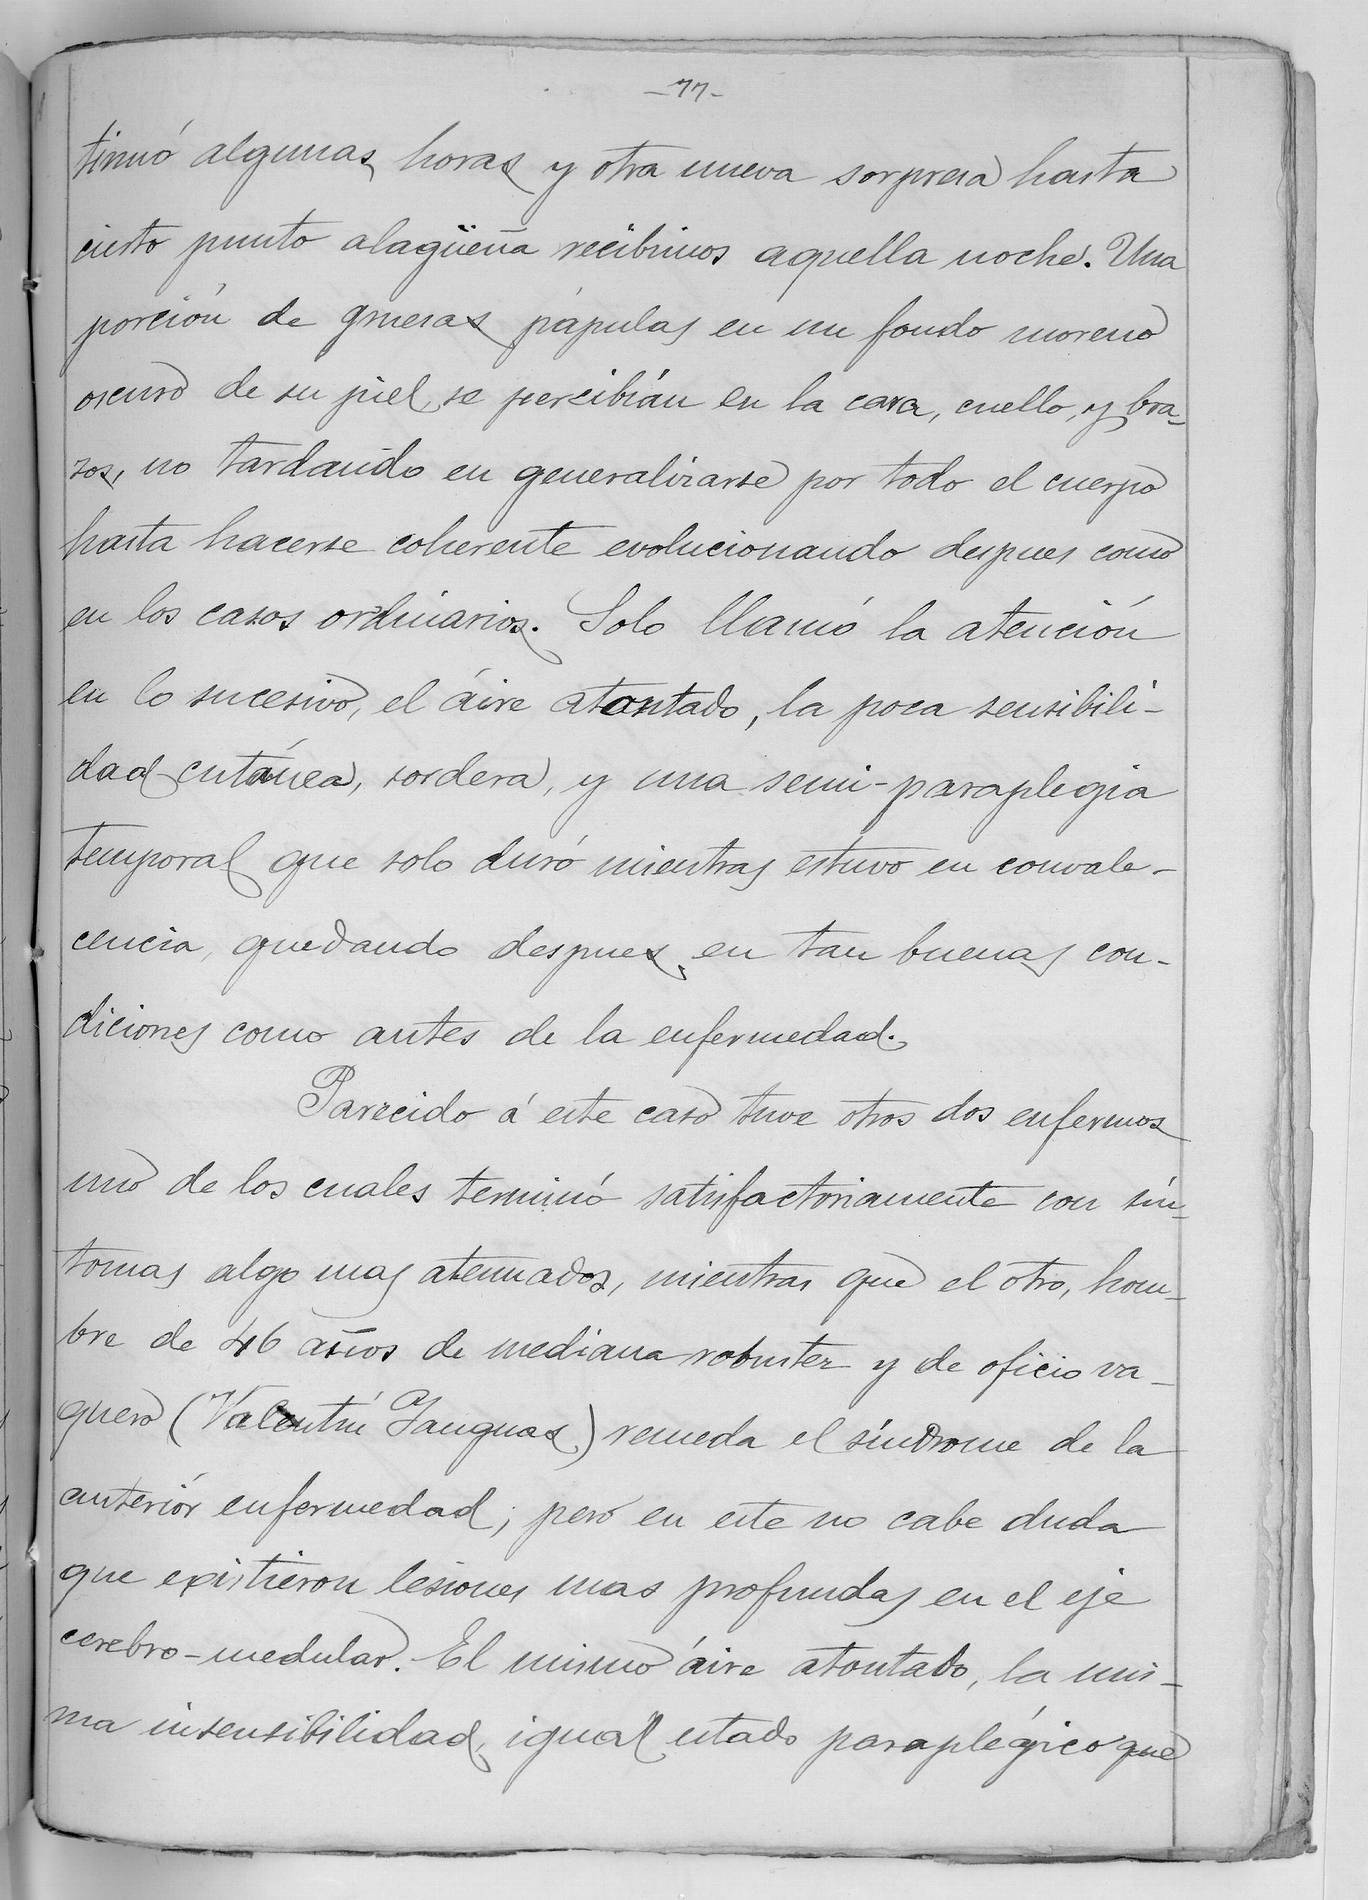 -77-
tinuó algunas horas y otra nueva sorpresa hasta
cierto punto alagüeña recibimos aquella noche. Una
porción de gruesas pápulas en un fondo moreno
oscuro de su piel se percibían en la cara, cuello, y bra-
zos, no tardando en generalizarse por todo el cuerpo
hasta hacerse coherente evolucionando despues como
en los casos ordinarios. Solo llamó la atención
en lo sucesivo, el áire atontado, la poca sensibili-
dad cutánea, sordera, y una semi-paraplegia
temporal que solo duró mientras estuvo en convale-
cencia, quedando despues, en tan buenas con-
diciones como antes de la enfermedad.
Parecido á este caso tuve otros dos enfermos
uno de los cuales terminó satisfactoriamente con sín-
tomas algo mas atenuados, mientras que el otro, hom-
bre de 46 años de mediana robustez y de oficio va-
quero (Valentín Janguas) remeda el síndrome de la
anteriór enfermedad; pero en este no cabe duda
que existieron lesiones mas profundas en el eje
cerebro-medular. El mismo áire atontado, la mis-
ma insensibilidad, igual estado paraplégico que